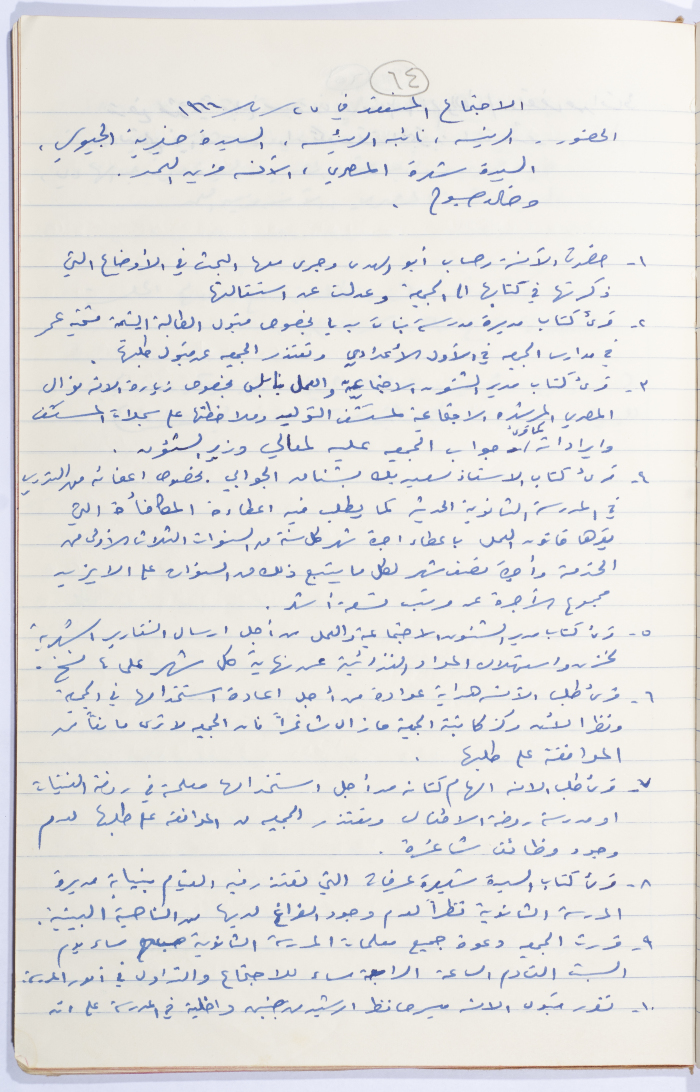 ٦٤
الاجتماع المنعقد في ١٩٦٦
الحضور - الرئيسة ، نائبة الرئيسة ، السيدة خيرية الجيوسي ،
السيدة شهرة المصري ، الآنسة
وخالد صبوح .
١- حضرت الآنسة رحاب أبو الهدى وجرى معها البحث في الأوضاع التي
ذكرتها في كتابها الى الجمعية وعدلت عن استقالتها
٢- قرئ كتاب مديرة مدرسة بنات بخصوص قبول الطالبة اليتيمة فتحية عمر
في مدارس الجمعية في الأول الاعدادي وتعتذر الجمعية عن قبول طلبها .
٣- قرئ كتاب مدير الشئون الاجتماعية والعمل بنابلس بخصوص زيارة الآنسة نوال
المصري المرشدة الاجتماعية لمستشفى التوليد وملاحظتها على سجلات المستشفى
وايراداته جواب الجمعية عليه لمعالي وزير الشئون .
٤- قرئ كتاب الاستاذ سعيد بك بشناق الجوابي بخصوص اعفائه من التدريس
في المدرسة الثانوية الحديثة كما يطلب فيه اعطاءه المكافأة التي
يقرها قانون العمل باعطاء اجرة شهر كل سنة من السنوات الثلاث الأولى من
الخدمة وأجرة نصف شهر لكل ما يتبع ذلك من السنوات على الا يزيد
مجموع الأجرة عن مرتب تسعة أشهر .
٥- قرئ كتاب مدير الشئون الاجتماعية والعمل من أجل ارسال التقارير الشهرية
لمخزن واستهلاك المواد الغذائية عن نهاية كل شهر على ٤ نسخ .
٦- قرئ طلب الآنسة هداية عوادة من أجل اعادة استخدامها في الجمعية
ونظرا لأن مركز كاتبة الجمعية ما زال شاغراً فان الجمعية لا ترى مانعاً من
الموافقة على طلبها .
٧- قرئ طلب الآنسة الهام كنانة من أجل استخدامها معلمة في روضة الفتيات
او مدرسة روضة الاطفال وتعتذر الجمعية عن الموافقة على طلبها لعدم
وجود وظائف شاغرة .
٨- قرئ كتاب السيدة شهيرة عرفات التي تعتذر فيه القيام بنيابة مديرة
المدرسة الثانوية نظراً لعدم وجود الفراغ لديها من الناحية البيتية .
٩- قررت الجمعية دعوة جميع معلمات المدرسة الثانوية مساء يوم
السبت القادم الساعة الرابعة مساء للاجتماع والتداول في أمور المدرسة .
١٠- تقرر قبول الآنسة حافظ ارشيد من جنين داخلية في المدرسة على انه